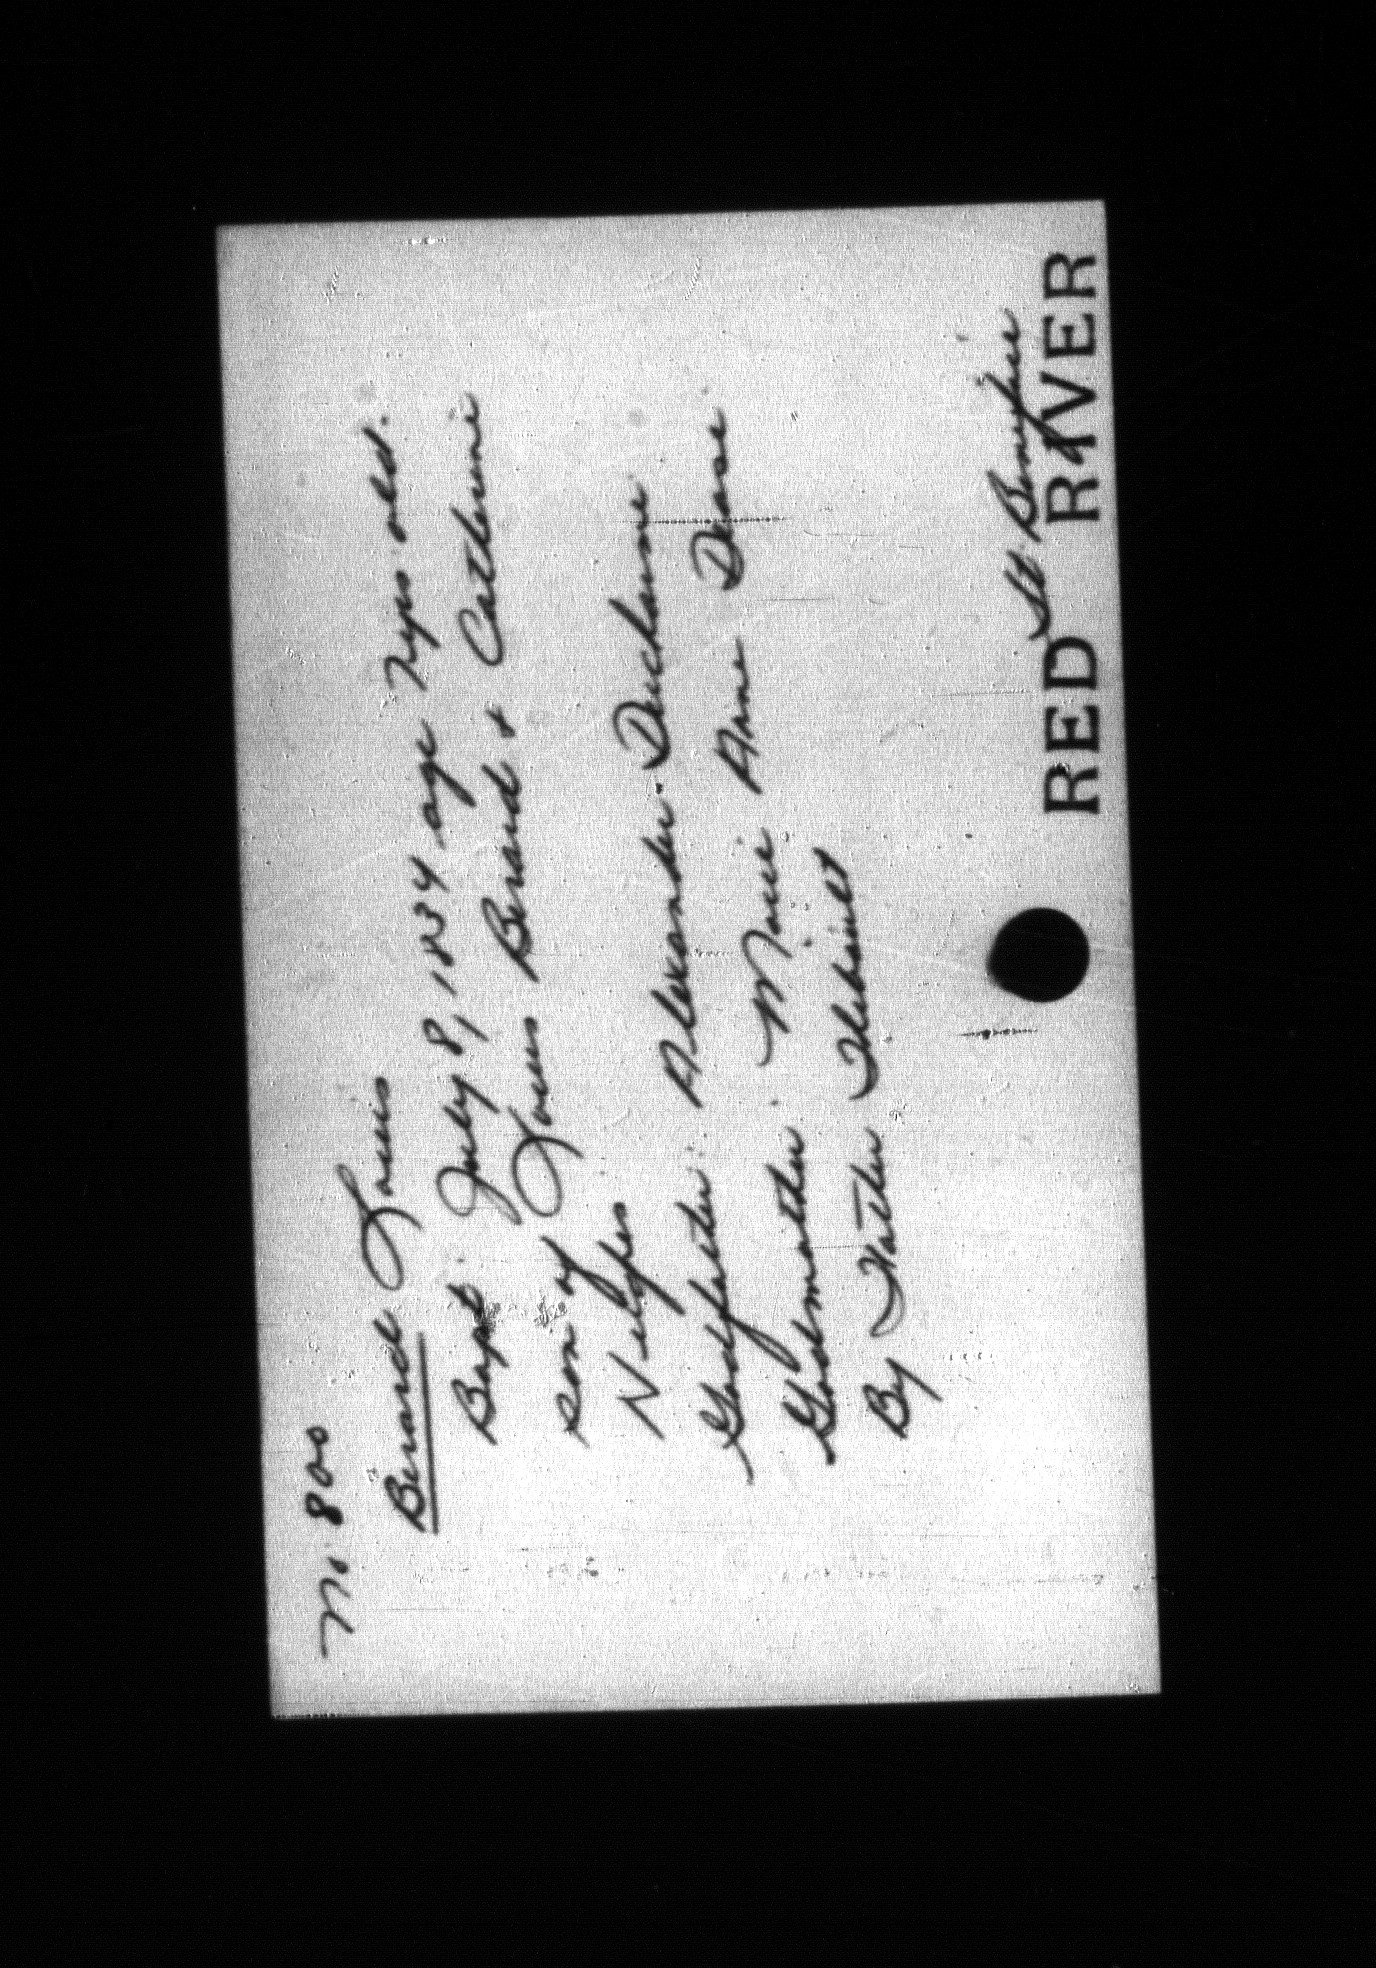 M. 800
Berard Louis
Bapt. July 8, 1834 age 7 yrs old.
son of Louis Berard & Catherine
Nelyes
Godfather: Alexander Ducharme
Godmother: Marie Anne Dease
By Father Thibault
St Boniface
RED RIVER